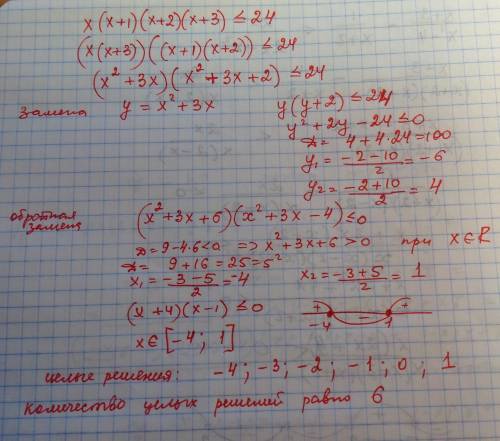 x(x+1)(x+2)(x+3) ≤ 24
(x(x+3))((x+1)(x+2)) ≤ 24
(x² + 3x)(x² + 3x + 2) ≤ 24
замена y = x² + 3x y(y+2) ≤ 24
y² + 2y - 24 ≤ 0
D = 4 + 4·24 = 100
y₁ = (-2-10)/2 = -6
y₂ = (-2+10)/2 = 4
обратная замена (x² + 3x + 6)(x² + 3x - 4) ≤ 0
D = 9 - 4·6 < 0 ⇒ x² + 3x + 6 > 0 при x ∈ R
D = 9 + 16 = 25 = 5²
x₁ = (-3-5)/2 = -4 x₂ = (-3+5)/2 = 1
(x+4)(x-1) ≤ 0 + - +
-4 1
x ∈ [-4; 1]
целые решения: -4; -3; -2; -1; 0; 1
количество целых решений равно 6